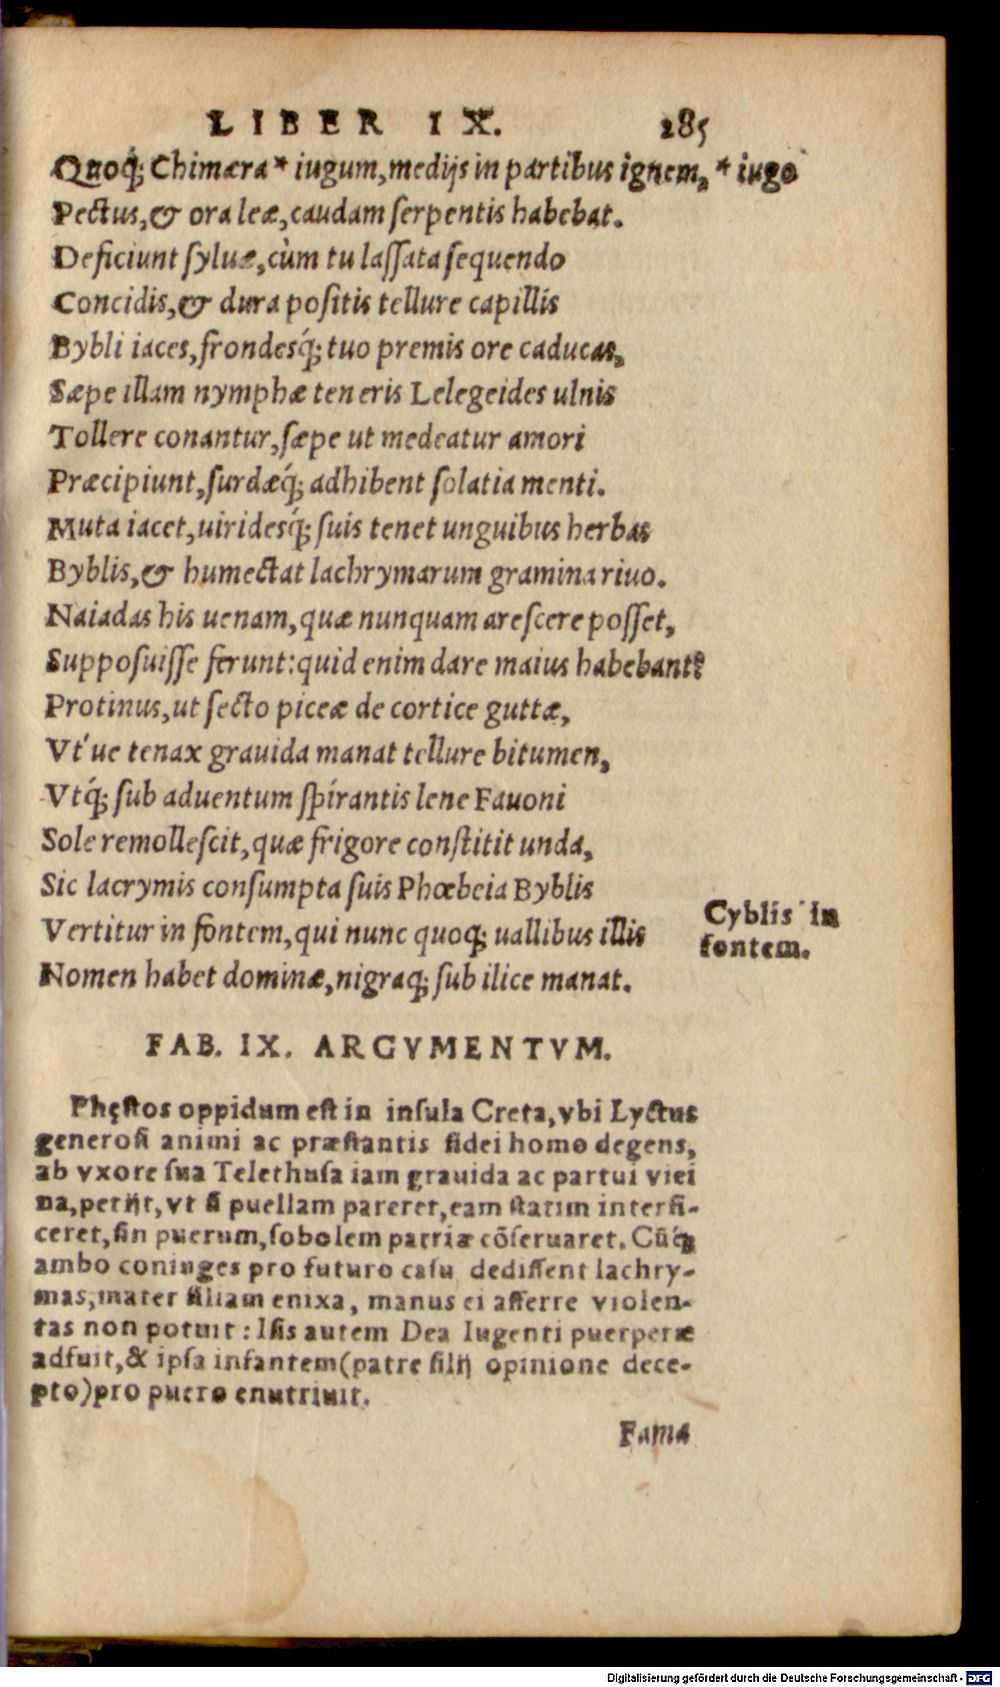 LIBER IX. 285
Quoq́; Chimæra * iugum, medijs in partibus ignem, * iugo
Pectus, & ora leæ, caudam ſerpentis habebat.
Deficiunt ſyluæ, cùm tu laſſata ſequendo
Concidis, & dura poſitis tellure capillis
Bybli iaces, frondesq́; tuo premis ore caducas,
Sæpe illam nymphæ teneris Lelegeides ulnis
Tollere conantur, ſæpe ut medeatur amori
Præcipiunt, ſurdæq́; adhibent ſolatia menti.
Muta iacet, uiridesq́; ſuis tenet unguibus herbas
Byblis, & humectat lachrymarum gramina riuo.
Naiadas his uenam, quæ nunquam areſcere poſſet,
Suppoſuiſſe ferunt: quid enim dare maius habebant?
Protinus, ut ſecto piceæ de cortice guttæ,
Vt'ue tenax grauida manat tellure bitumen,
Vtq́; ſub aduentum ſpirantis lene Fauoni
Sole remolleſcit, quæ frigore conſtitit unda,
Sic lacrymis conſumpta ſuis Phœbeia Byblis
Vertitur in fontem, qui nunc quoq; uallibus illis
Nomen habet dominæ, nigraq; ſub ilice manat.
Cyblis in
fontem.
FAB. IX. ARGVMENTVM.
Phęſtos oppidum eſt in inſula Creta, vbi Lyctus
generoſi animi ac præſtantis fidei homo degens,
ab vxore ſua Telethuſa iam grauida ac partui vici
na, petijt, vt ſi puellam pareret, eam ſtatim interfi-
ceret, ſin puerum, ſobolem patriæ cõſeruaret. Cũq́;
ambo coniuges pro futuro caſu dediſſent lachry-
mas, mater filiam enixa, manus ei afferre violen-
tas non potuit: Iſis autem Dea lugenti puerperæ
adfuit, & ipſa infantem (patre filij opinione dece-
pto) pro puero enutriuit.
Fama
Digitalisierung gefördert durch die Deutsche Forschungsgemeinschaft - DFG